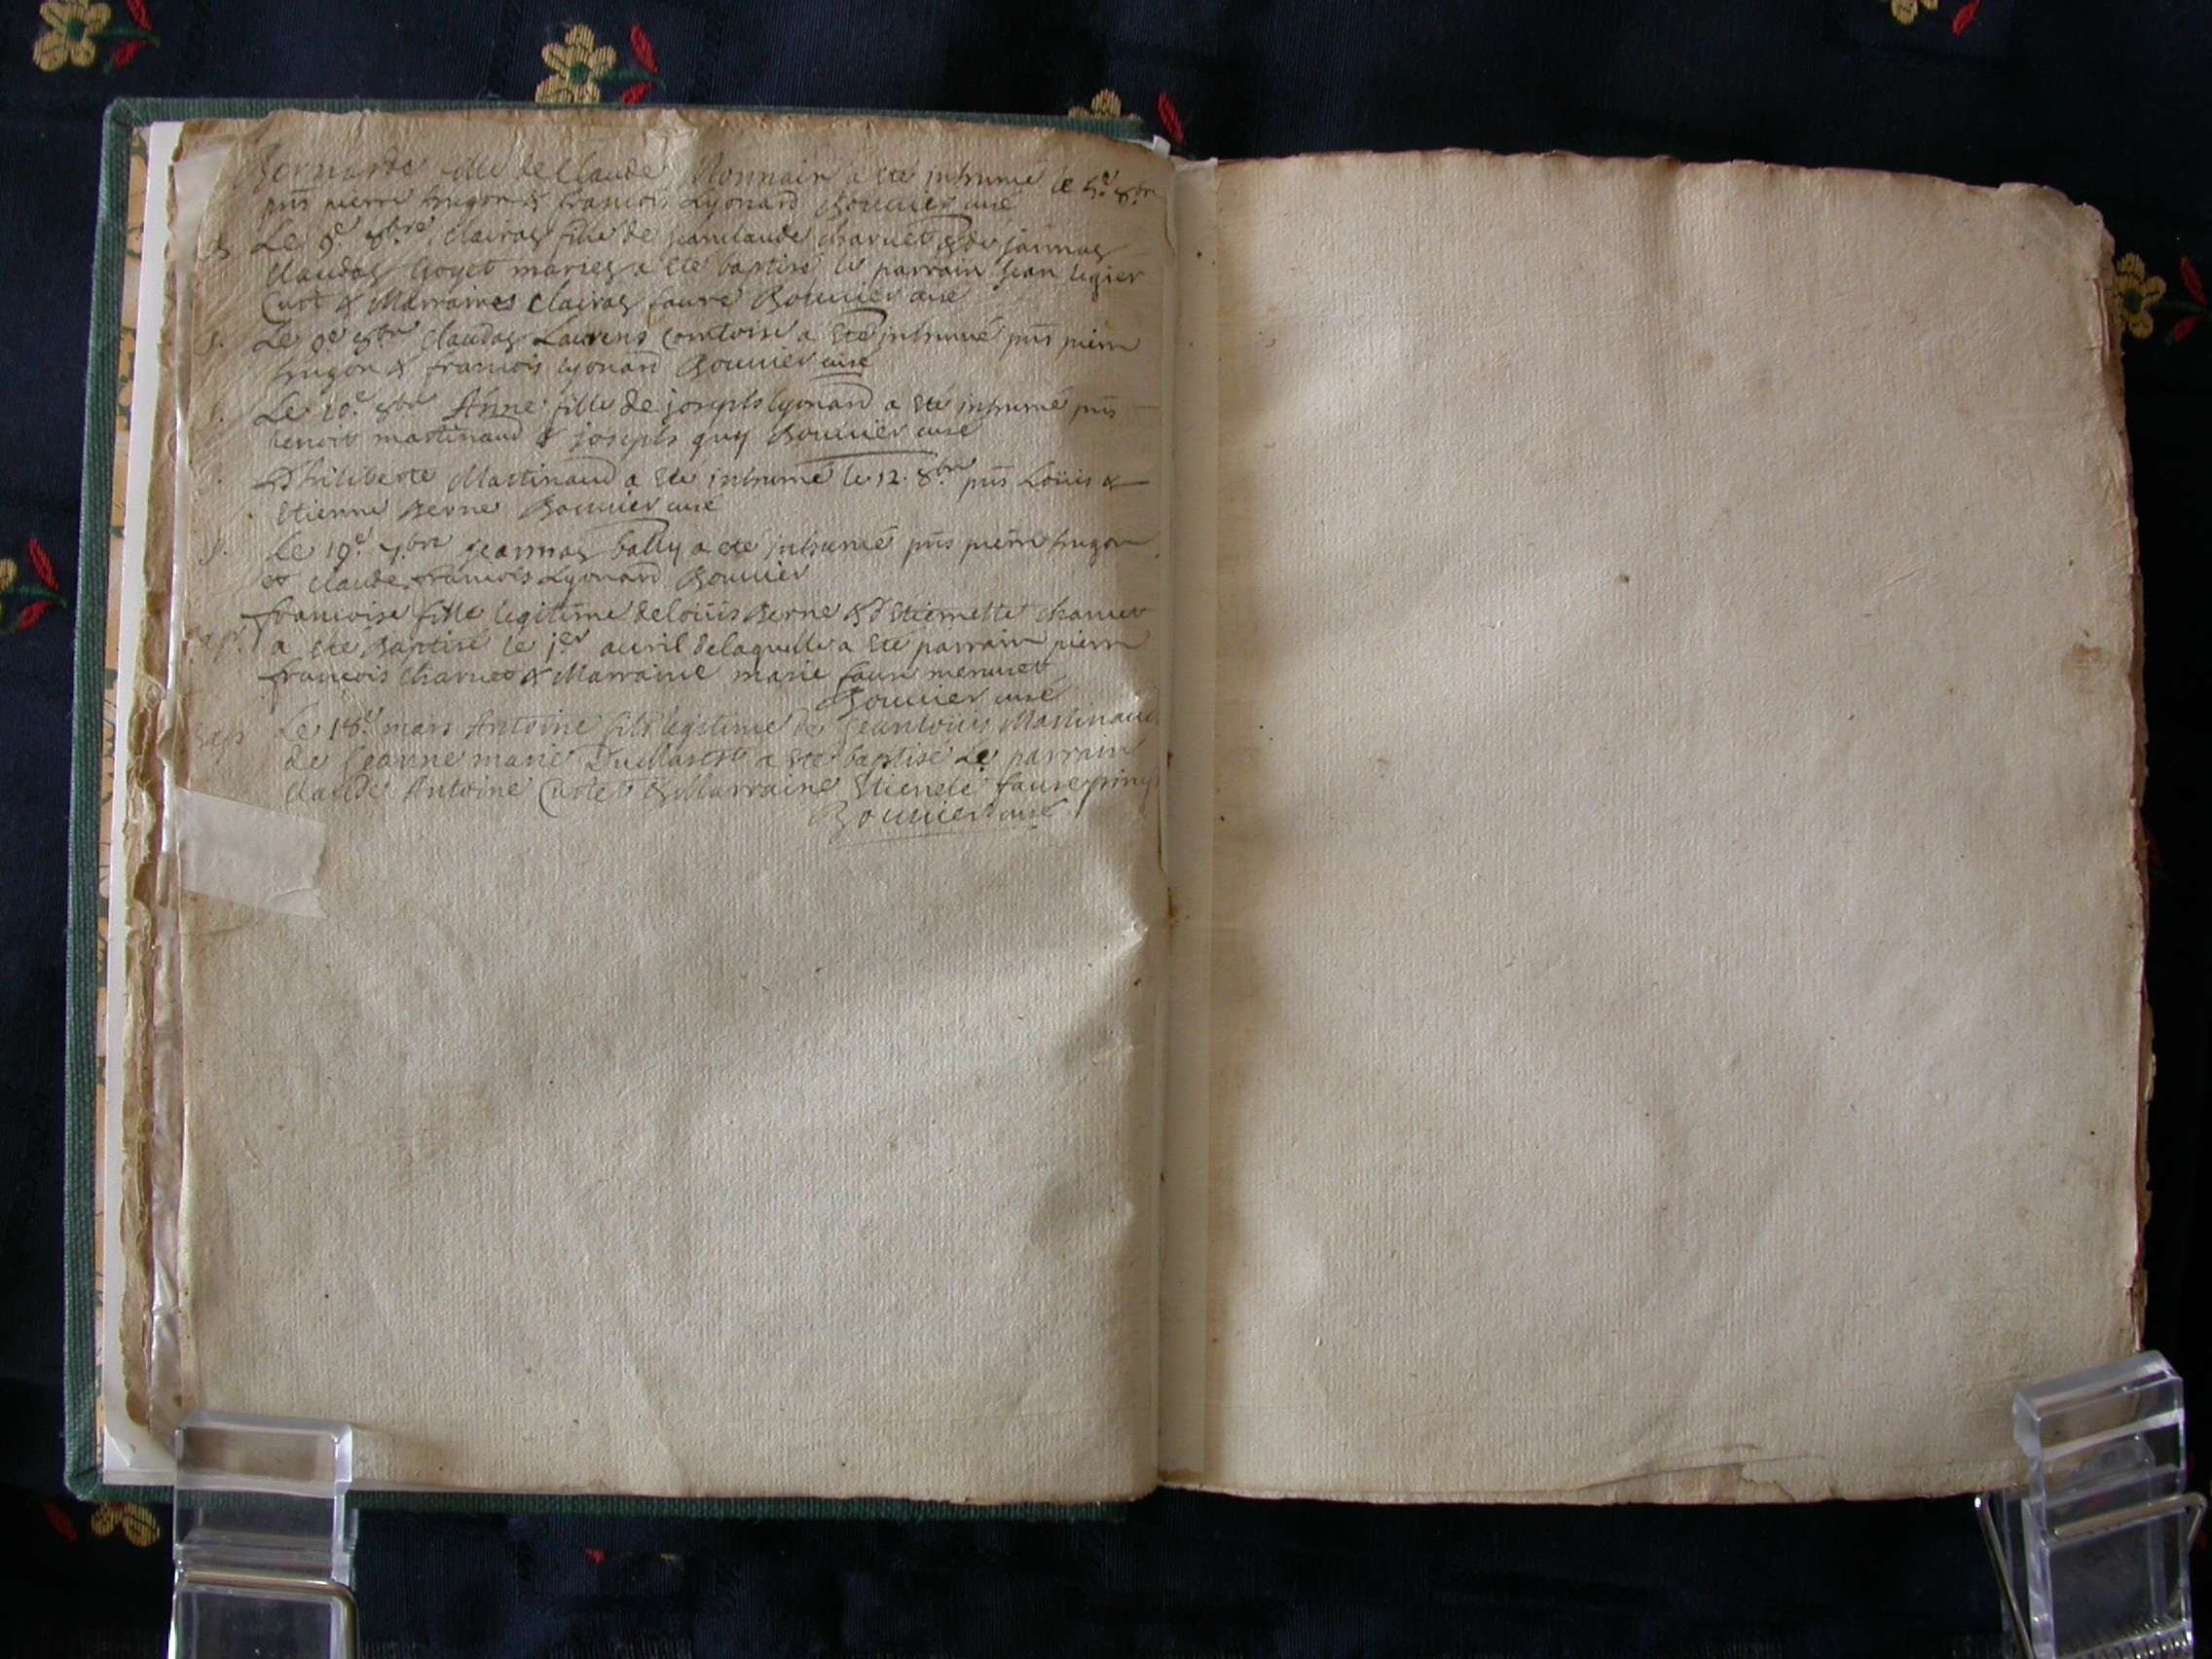 Bernarde de Claude Monnair a ete inhumé le 5e 8bre
pns pierre hugon & francois Lyonard Bouuier curé
B Le 9e 8bre Clairaz fille de Jeanclaude charuet & de jannaz
Claudaz Goyet mariez a ete baptisé le parrain Jean legier
Curt & Marraines Clairaz faure Bouuier curé
S. Le 9e 8bre Claudaz Laurens Comtoise a ete inhumé pns pierre
hugon & francois lyonard Bouuier curé
S. Le 10e 8bre Anne fille de joseph lyonard a eté inhumé pns
benoit martinand & joseph guy Bouuier curé
S. Philiberte Martinand a ete inhumé le 12. 8bre pns Loüis &
Etienne Berne Bouuier curé
S. Le 19e 7bre Jeannaz bally a eté inhumé pns pierre hugon
et claude francois Lyonard Bouuier
francoise fille legitime de loüis Berne & d'Etiennette charuet
Bap. a ete Baptisé le jer auril de laquelle a ete parrain pierre
francois Charuet & Marraine marie faure menuset
Bouuier curé
Bap Le 18e mars Antoine fils legitime de Jeanlouis Martinand
de Jeanne marie DuMarest a ete baptisé Le parrain
claude Antoine Curtet & Marraine faure
Bouuier curé